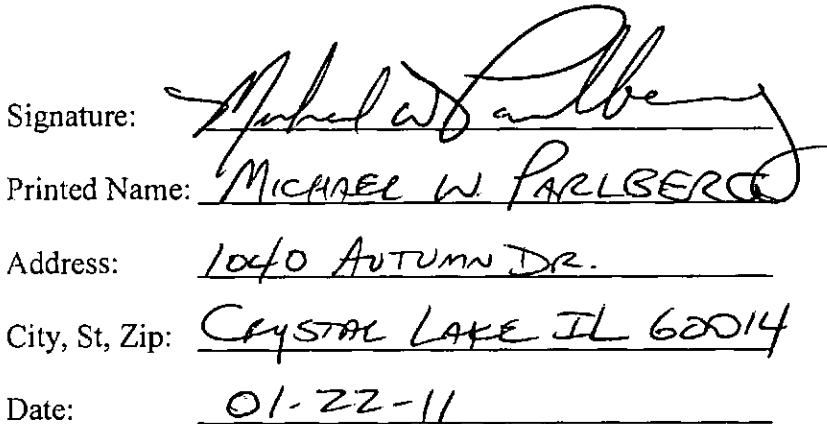 Signature: Michael W Parlberg
Printed Name: MICHAEL W. PARLBERG
Address: 1040 AUTUMN DR.
City, St, Zip: CRYSTAL LAKE IL 60014
Date: 01-22-11